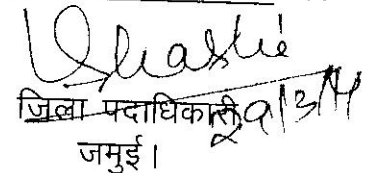 जिला पदाधिकारी
29/3/14
जमुई।